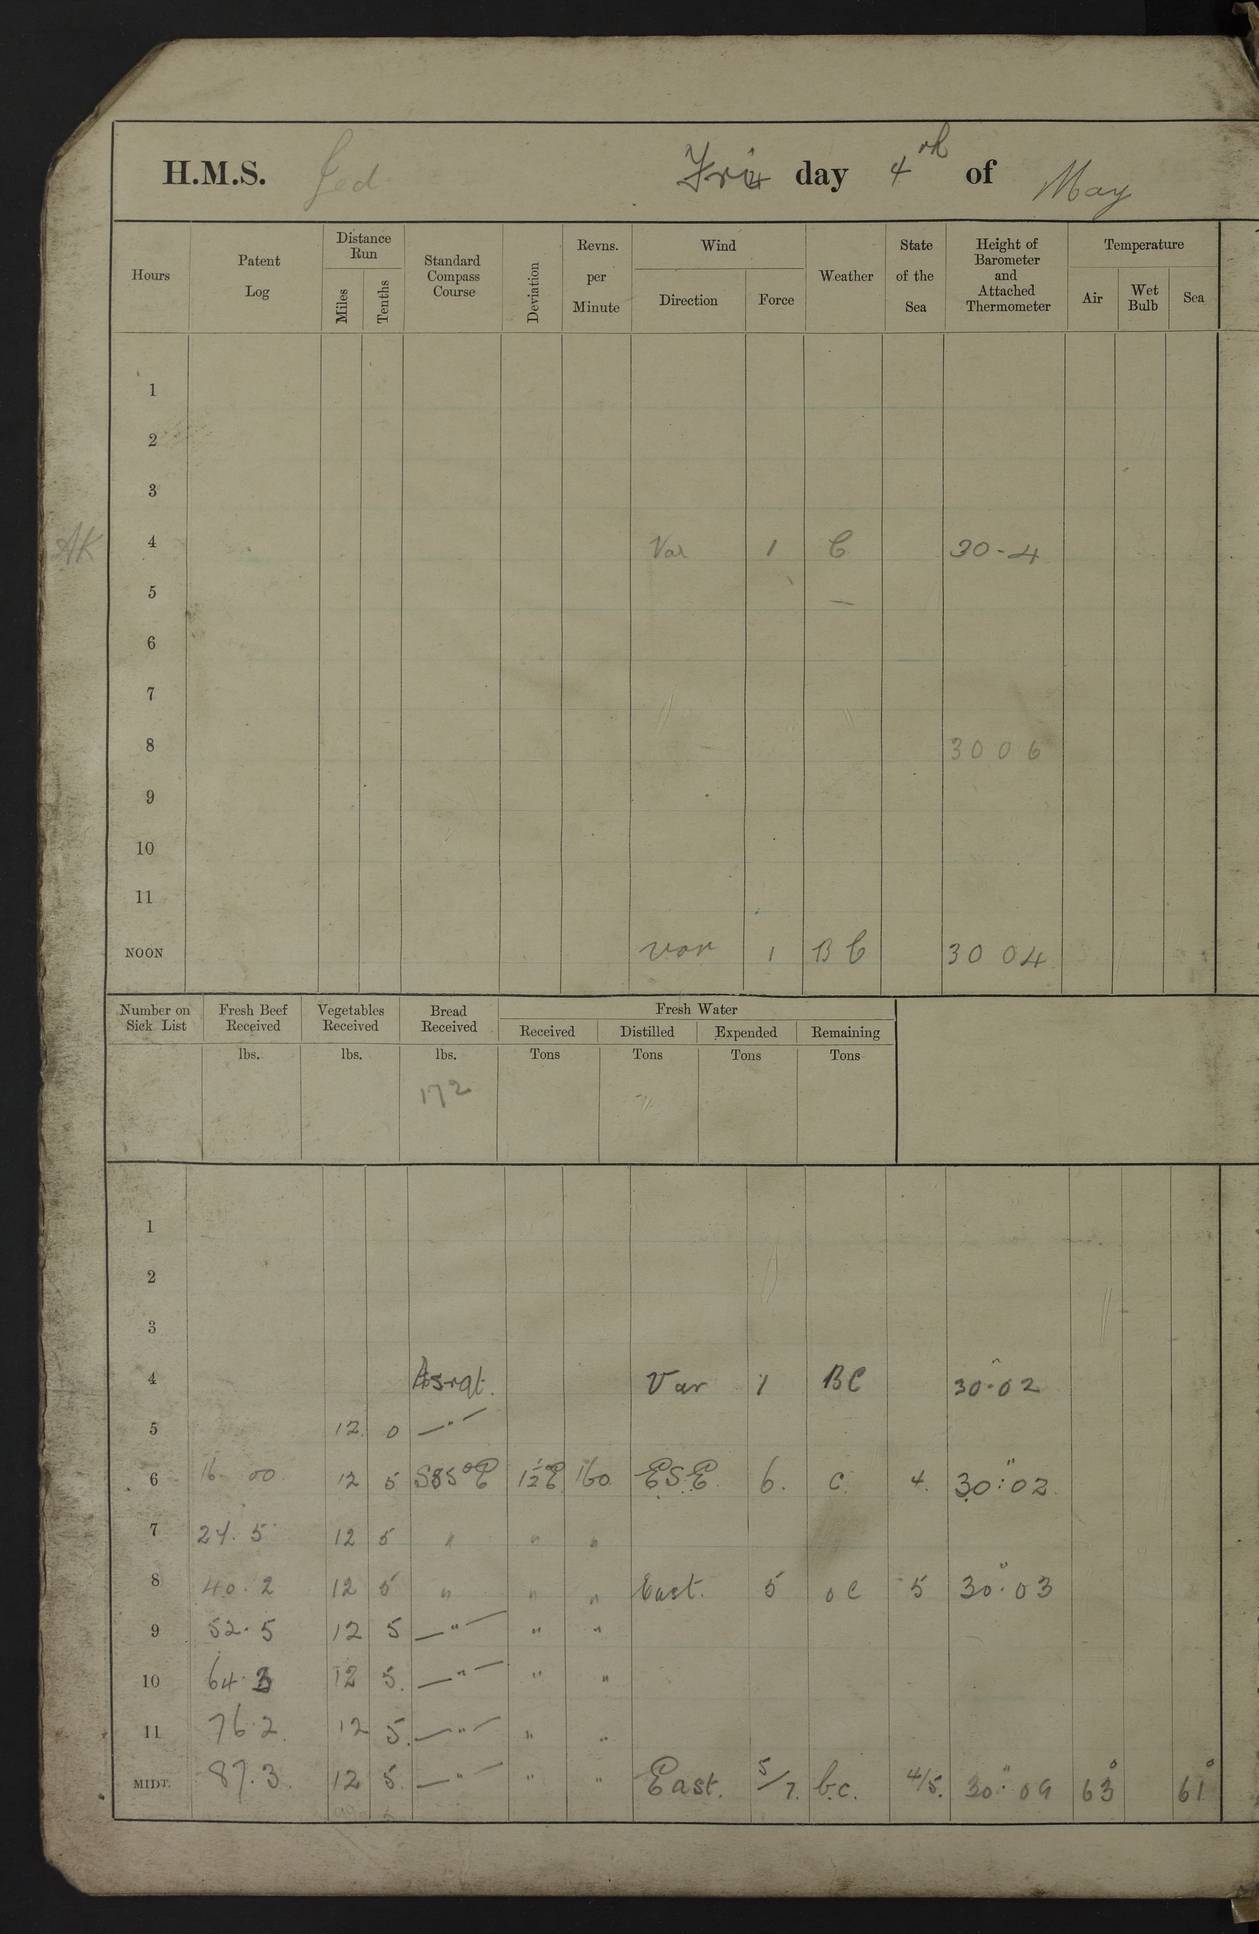 H.M.S. Jed Fri day 4th of May
Hours Patent Log Distance Run Miles Tenths Standard Compass Course Deviation Revns. per Minute Wind Direction Force Weather State of the Sea Height of Barometer and Attached Thermometer Temperature Air Wet Bulb Sea
1
2
3
AK 4 Var 1 C 30-4
5
6
7
8 30 06
9
10
11
NOON var 1 B C 30 04
Number on Sick List Fresh Beef Received Vegetables Received Bread Received Fresh Water
Received Distilled Expended Remaining
lbs. lbs. lbs. Tons Tons Tons Tons
172
1
2
3
4 Asrqt. Var 1 BC 30.02
5 12 0 —"—
6 16. 00 12 5 S85°E 1½°E 160 ESE 6. C 4. 30:02
7 27. 5 12 5 " " "
8 40. 2 12 5 " " " East. 5 o C 5 30.03
9 52.5 12 5 —"— " "
10 64.3 12 5. —"— " "
11 76.2. 12 5. —"— " "
MIDT. 87.3. 12 5. —"— " " East. 5/7. b.c. 4/5. 30.09 63° 61°